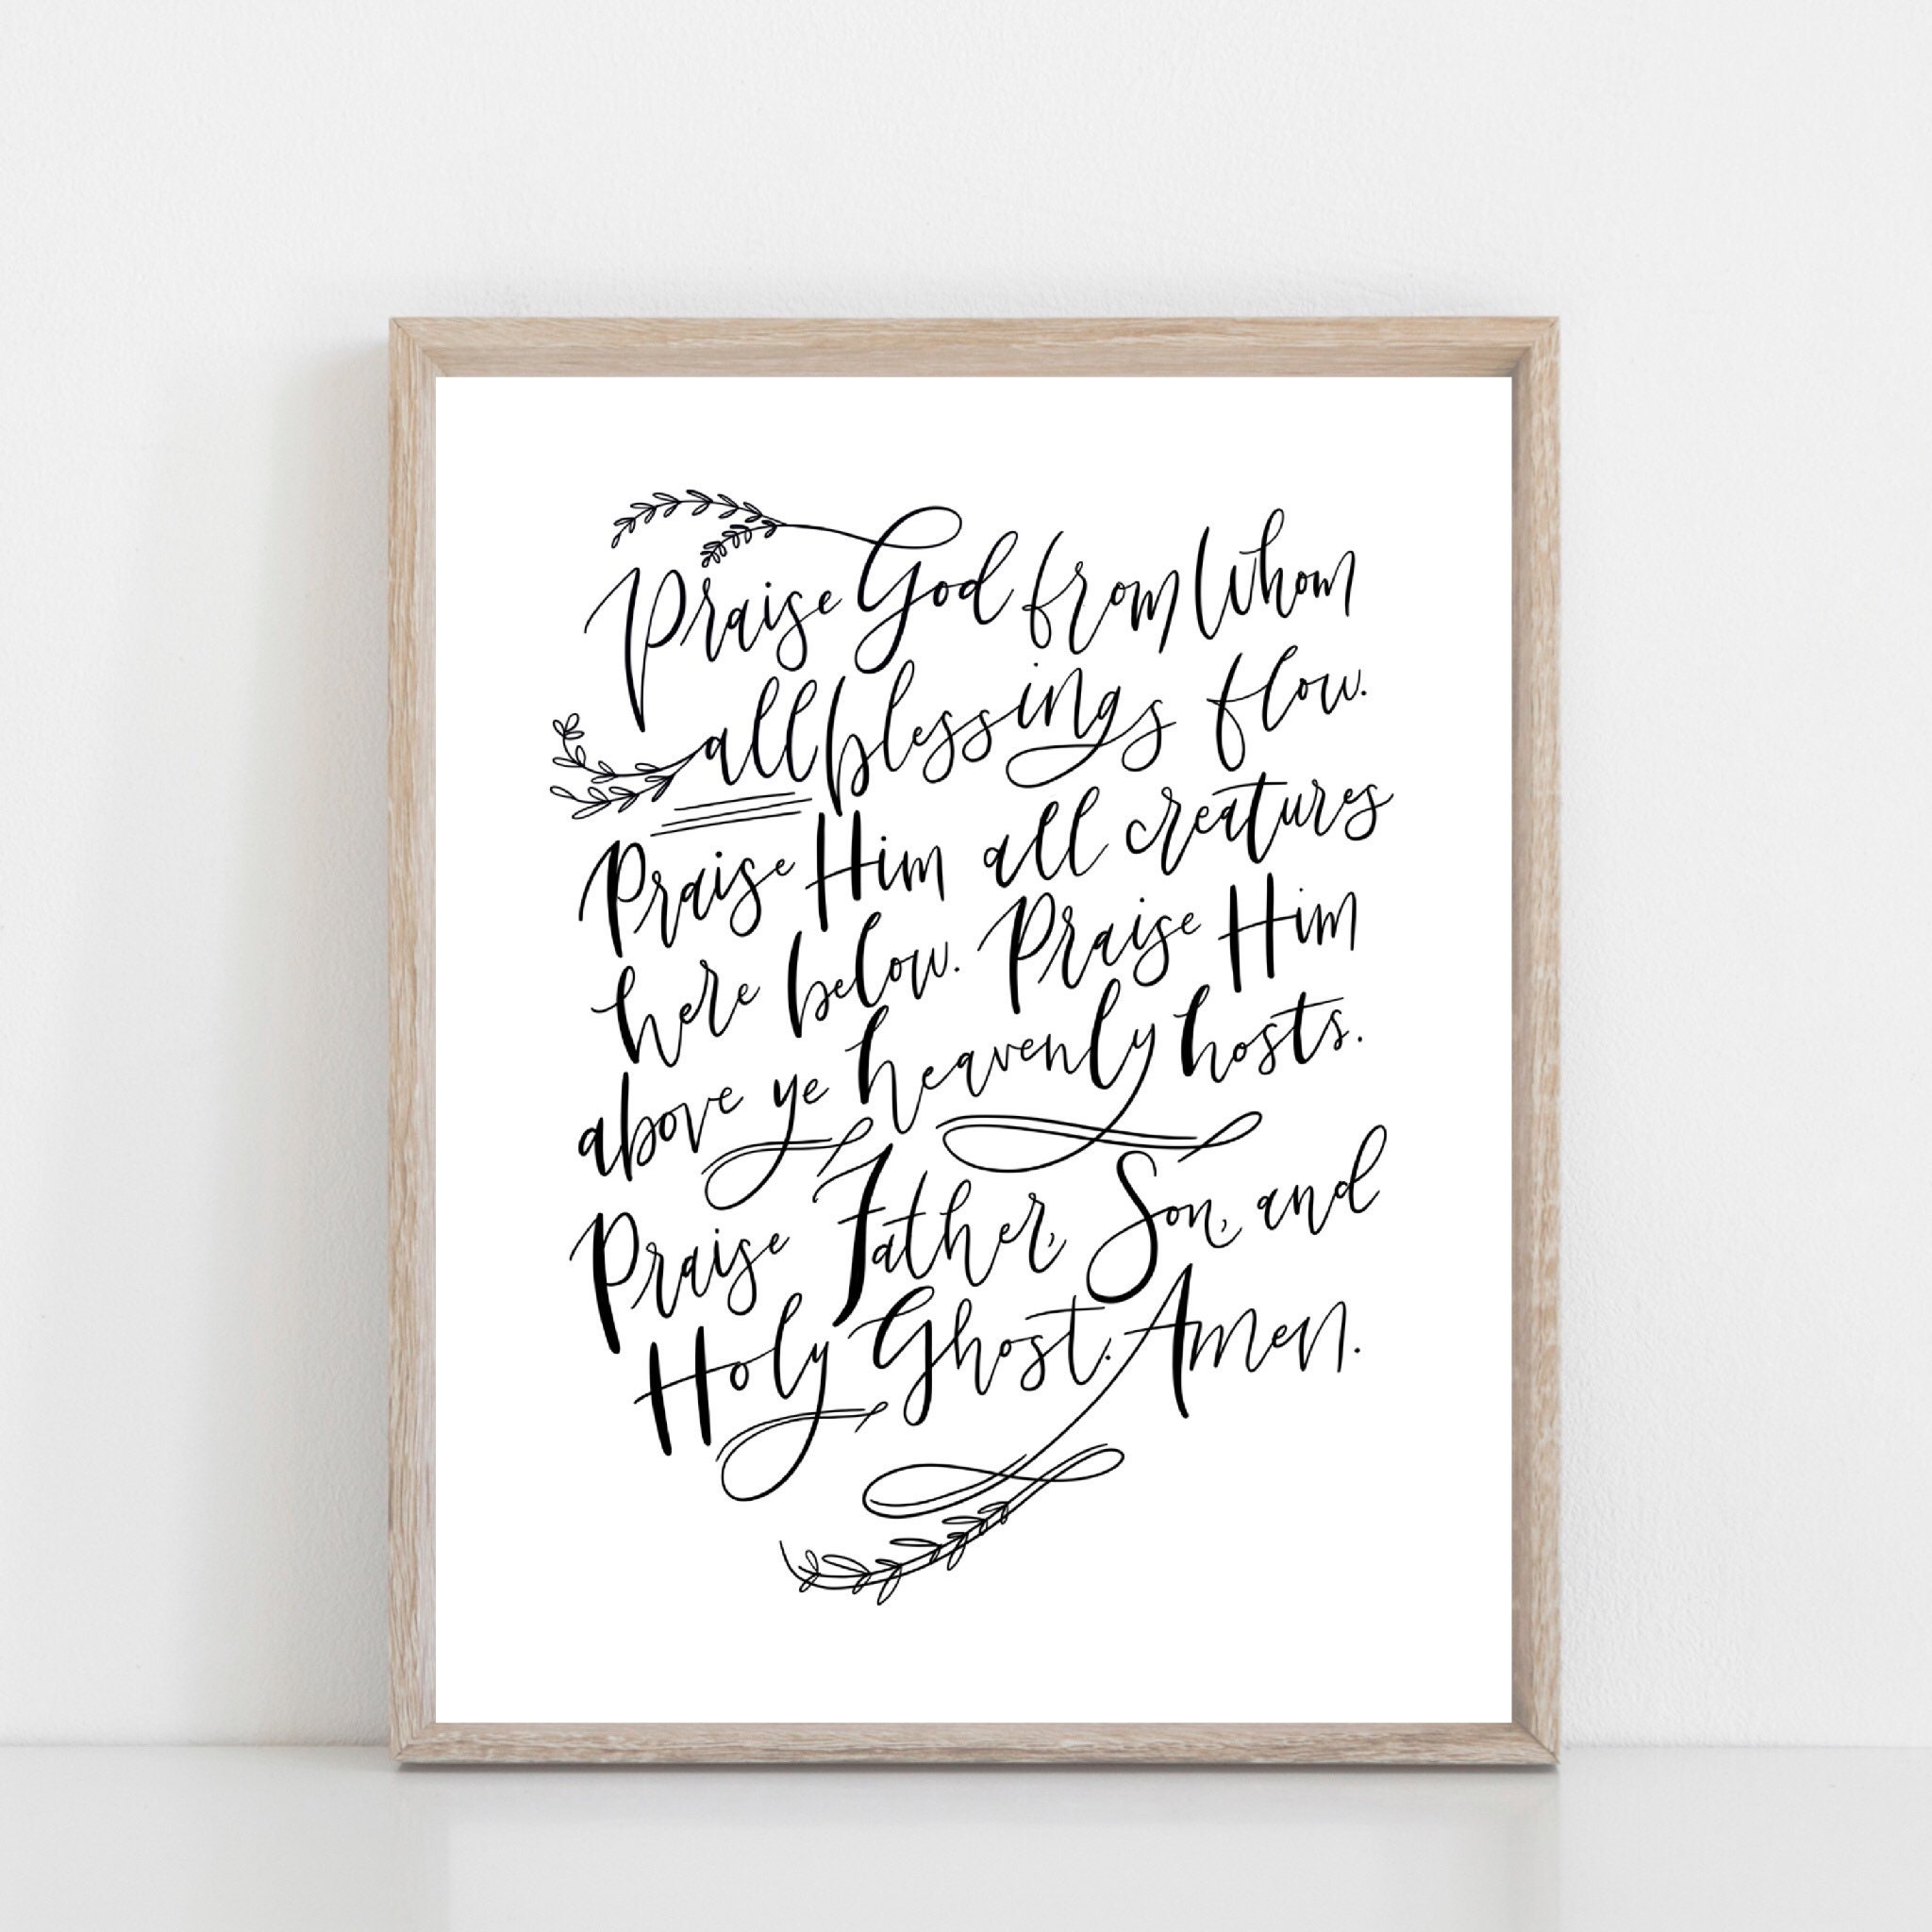 Praise God from Whom
all blessings flow.
Praise Him all creatures
here below. Praise Him
above ye heavenly hosts.
Praise Father, Son, and
Holy Ghost. Amen.